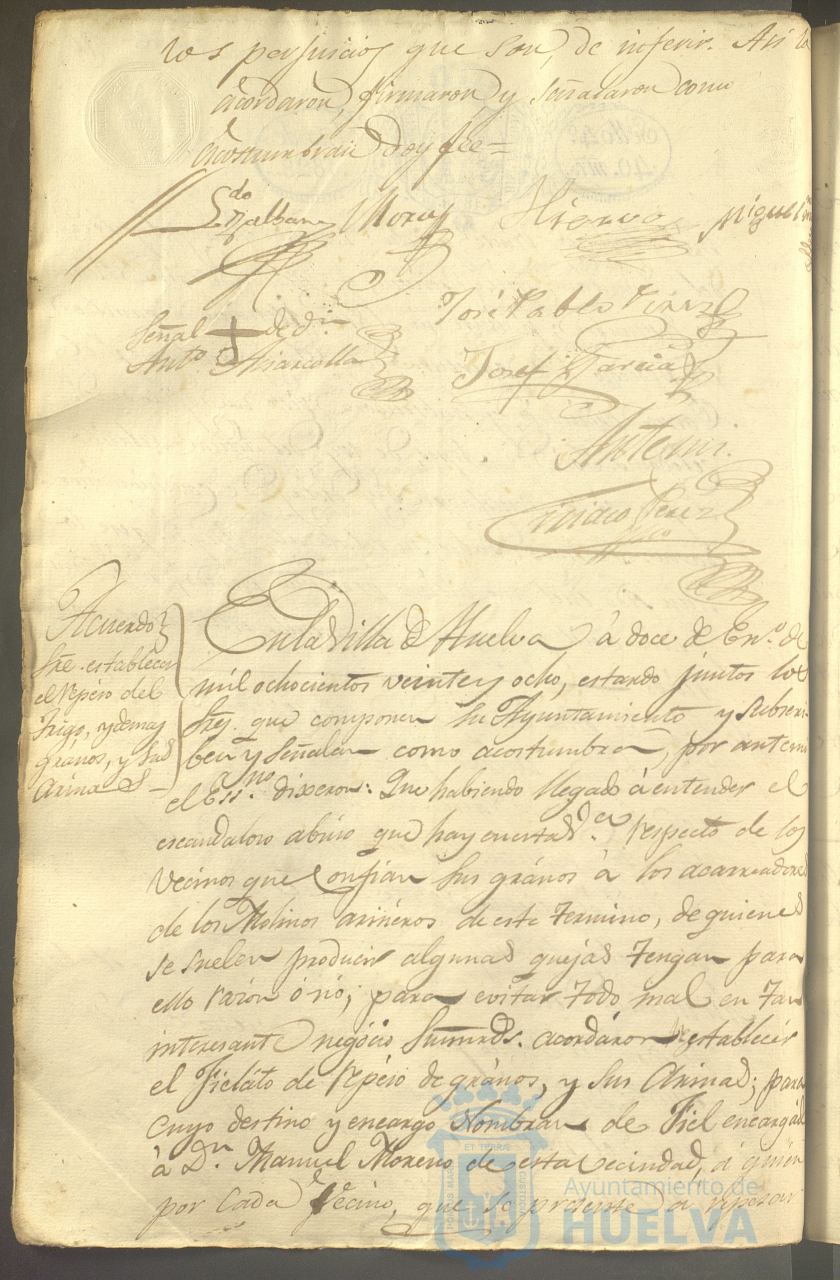 los perjuicios que son de inferir. Asi lo
acordaron, firmaron y señalaron como
acostumbran doy fee=
Miguel
José Pablo Perez
Señal + de dn.
Anto.
Josef Garcia
Antemi.
Ciriaco Perez
Acuerdo
sre. establecer
el repéso del
trigo, y demas
grános, y sus
arinas
En la Villa de Huelva à doce de Eno. de
mil ochocientos veinte y ocho, estando juntos los
Sres. que componen su Ayuntamiento y subscri-
ben y señalan como acostumbran, por antemi
el Essno. dixeron: Que habiendo llegado á entender el
escandaloso abúso que hay en esta respecto de los
vecinos que confian sus grános à los acarreadores
de los Molinos arinéros de este termino, de quienes
se suelen producir algunas quejas tengan para
ello razon ó nó; para evitar todo mal en tan
interesante negócio sus mrds. acordáron establecér
el Fieláto de repéso de grános, y sus arinas; para
cuyo destino y encargo nombran de Fiel encargdo
à Dn. Manuel Moreno de esta vecindad, á quién
por cada vecino, que se presente à repesar
ET TERRAE
Ayuntamiento de
HUELVA